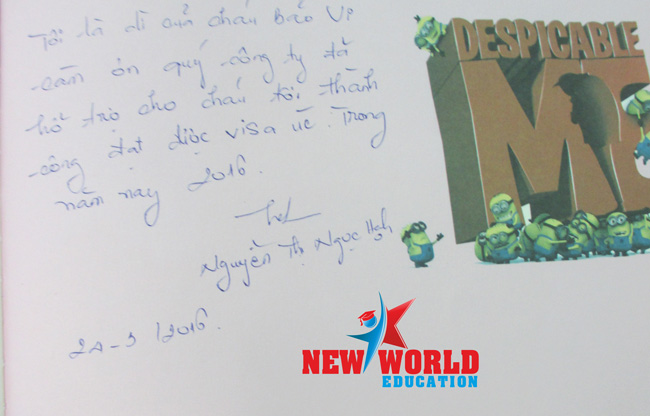 Tôi là dì của cháu bảo Vi
cảm ơn quý công ty đã
hổ trợ cho cháu tôi thành
công đạt được visa úc. Trong
năm nay 2016.
Nguyễn Thị Ngọc Hạnh
24-3/2016.
DESPICABLE
ME
NEW WORLD
EDUCATION